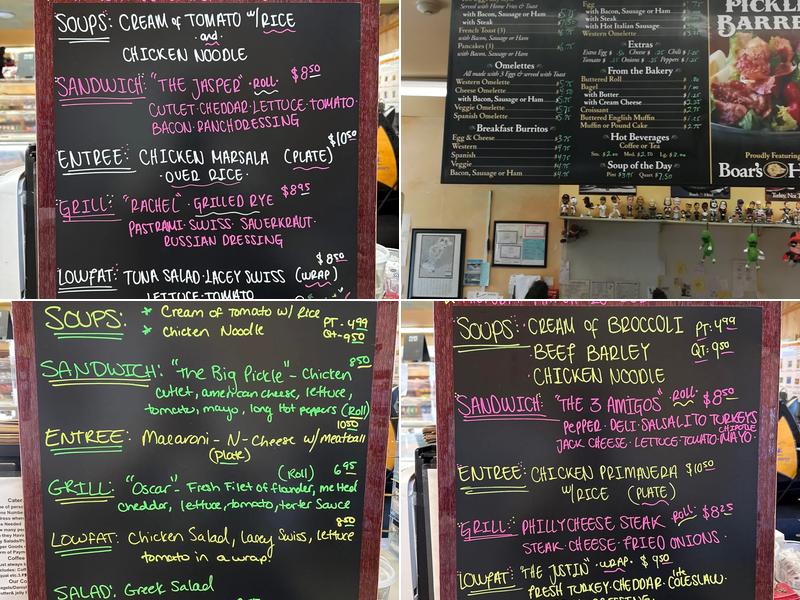 SOUPS: CREAM of TOMATO w/RICE
and
CHICKEN NOODLE
SANDWICH: "THE JASPER" ROLL $8.50
CUTLET·CHEDDAR·LETTUCE·TOMATO·
BACON·RANCH DRESSING
ENTREE: CHICKEN MARSALA (PLATE) $10.50
·OVER RICE·
GRILL: "RACHEL" · GRILLED RYE $8.95
PASTRAMI·SWISS·SAUERKRAUT·
RUSSIAN DRESSING
LOWFAT: TUNA SALAD·LACEY SWISS (WRAP) $8.50
LETTUCE·TOMATO
Served with Home Fries & Toast
with Bacon, Sausage or Ham
with Steak
French Toast (3)
with Bacon, Sausage or Ham
Pancakes (3)
with Bacon, Sausage or Ham
Omelettes
All made with 3 Eggs & served with Toast
Western Omelette
Cheese Omelette
with Bacon, Sausage or Ham
Veggie Omelette
Spanish Omelette
Breakfast Burritos
Egg & Cheese $3.75
Western $4.75
Spanish $4.75
Veggie $4.75
Bacon, Sausage or Ham $4.75
Egg
with Bacon, Sausage or Ham
with Steak
with Hot Italian Sausage
Western Omelette
Extras
Extra Egg Cheese Chili
Tomato Onions Peppers
From the Bakery
Buttered Roll
Bagel
with Butter
with Cream Cheese
Croissant
Buttered English Muffin
Muffin or Pound Cake
Hot Beverages
Coffee or Tea
Sm. $2.00 Med. $2.50 Lg. $3.00
Soup of the Day
Pint $3.95 Quart $7.50
PICKLE
BARREL
Proudly Featuring
Boar's H
SOUPS: * Cream of Tomato w/ Rice
* Chicken Noodle PT-4.99
QT-9.50
SANDWICH: "The Big Pickle"- Chicken 8.50
cutlet, american cheese, lettuce,
tomato, mayo, long Hot peppers (Roll)
ENTREE: Macaroni-N-Cheese w/ meatball 10.50
(Plate)
(Roll) 6.95
GRILL: "Oscar"- Fresh Filet of flounder, melted
cheddar, lettuce, tomato, tarter Sauce
8.50
LOWFAT: Chicken Salad, Lacey Swiss, lettuce
tomato in a wrap.
SALAD: Greek Salad
SOUPS: ·CREAM of BROCCOLI PT: 4.99
·BEEF BARLEY QT: 9.50
·CHICKEN NOODLE
SANDWICH: "THE 3 AMIGOS" ·ROLL· $8.50
PEPPER·DELI·SALSALITO TURKEYS
JACK CHEESE·LETTUCE·TOMATO·CHIPOTLE MAYO·
ENTREE: CHICKEN PRIMAVERA $10.50
W/RICE (PLATE)
GRILL: PHILLY CHEESE STEAK ROLL· $8.25
STEAK·CHEESE·FRIED ONIONS·
LOWFAT: "THE JUSTIN" ·WRAP· $9.50
FRESH TURKEY·CHEDDAR·lite COLESLAW·